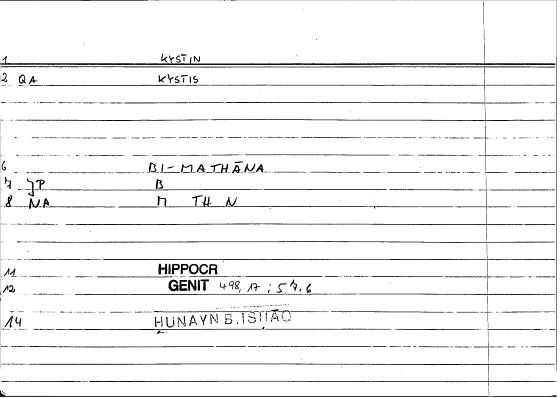 1 KYSTIN
2 QA KYSTIS
6 BI-MATHĀNA
7 JP B
8 NA M TH N
11 HIPPOCR
12 GENIT 498, 17 ; 57.6
14 ḤUNAYN B. ISḤĀQ